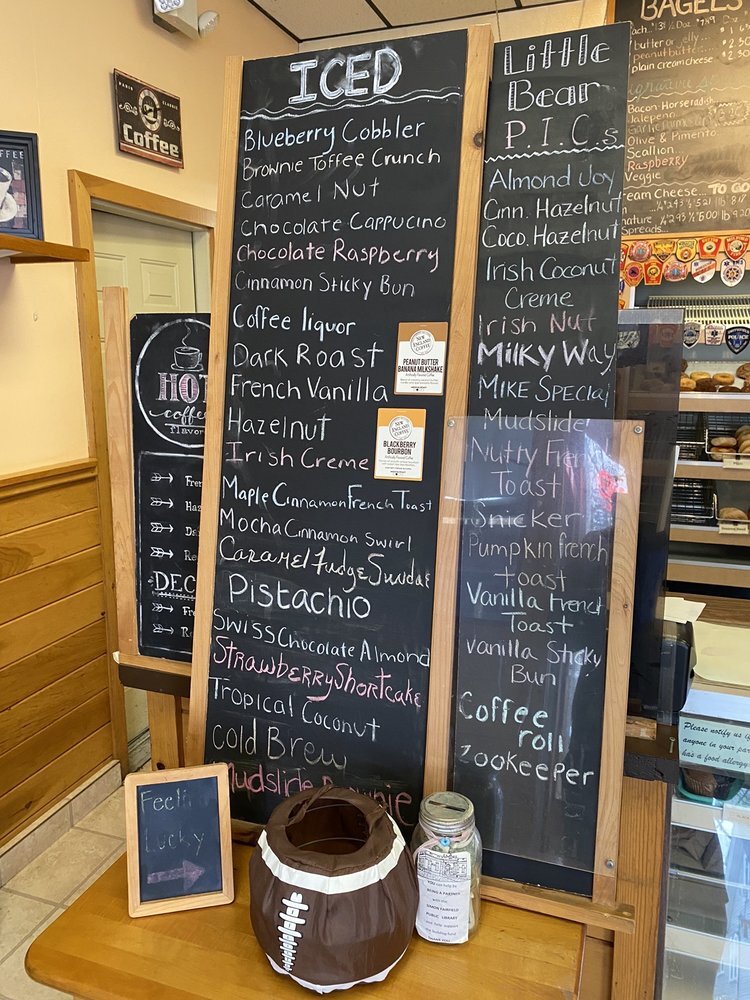 Coffee
ICED
Blueberry Cobbler
Brownie Toffee Crunch
Caramel Nut
Chocolate Cappucino
Chocolate Raspberry
Cinnamon Sticky Bun
Coffee liquor
Dark Roast
French Vanilla
Hazelnut
Irish Creme
Maple Cinnamon French Toast
Mocha Cinnamon Swirl
Caramel Fudge Sundae
Pistachio
Swiss Chocolate Almond
Strawberry Shortcake
Tropical Coconut
Cold Brew
Mudslide Brownie
NEW ENGLAND COFFEE
PEANUT BUTTER
BANANA MILKSHAKE
NEW ENGLAND COFFEE
BLACKBERRY
BOURBON
Little
Bear
P.I.C.s
Almond Joy
Cinn. Hazelnut
Coco. Hazelnut
Irish Coconut
Creme
Irish Nut
Milky Way
MIKE SPECIAL
Mudslide
Nutty French
Toast
Snicker
Pumpkin french
toast
Vanilla French
Toast
vanilla Sticky
Bun
Coffee
roll
zookeeper
BAGELS
butter or jelly
peanut butter
plain cream cheese
Bacon Horseradish
Jalepeno
Olive & Pimento
Scallion
Raspberry
Veggie
Cream Cheese... TO GO
Spreads...
HOT
coffee
flavor
DEC
Feelin
Lucky
YOU can help
BEING A PARTNER
with the
SIMON FAIRFIELD
PUBLIC LIBRARY
THANK YOU
Please notify us if
anyone in your par
has a food allergy
POLICE